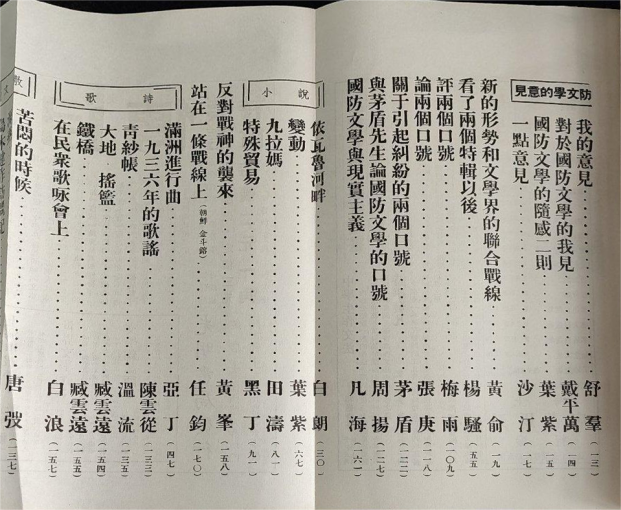 防文學的意見
我的意見 舒羣（一三）
對於國防文學的我見 戴平萬（一四）
國防文學的隨感二則 葉紫（一五）
一點意見 沙汀（一七）
新的形勢和文學界的聯合戰線 黃俞（一九）
看了兩個特輯以後 楊騷
評兩個口號 梅雨（一〇九）
論兩個口號 張庚（一一八）
關于引起糾紛的兩個口號 茅盾（一二二）
與茅盾先生論國防文學的口號 周揚（一二七）
國防文學與現實主義 凡海（一六一）
小說
依瓦魯河畔 白朗（三〇）
變動 葉紫（六七）
九拉媽 田濤（八一）
特殊貿易 黑丁（九一）
反對戰神的襲來 黃峯（一五八）
站在一條戰線上（朝鮮 金斗鎔） 任鈞（一七〇）
詩歌
滿洲進行曲 亞丁（四七）
一九三六年的歌謠 陳雲從（一三三）
青紗帳 溫流（一三五）
大地 搖籃 臧雲遠（一五四）
鐵橋 臧雲遠（一五五）
在民衆歌咏會上 白浪（一五七）
苦悶的時候 唐弢（一三七）